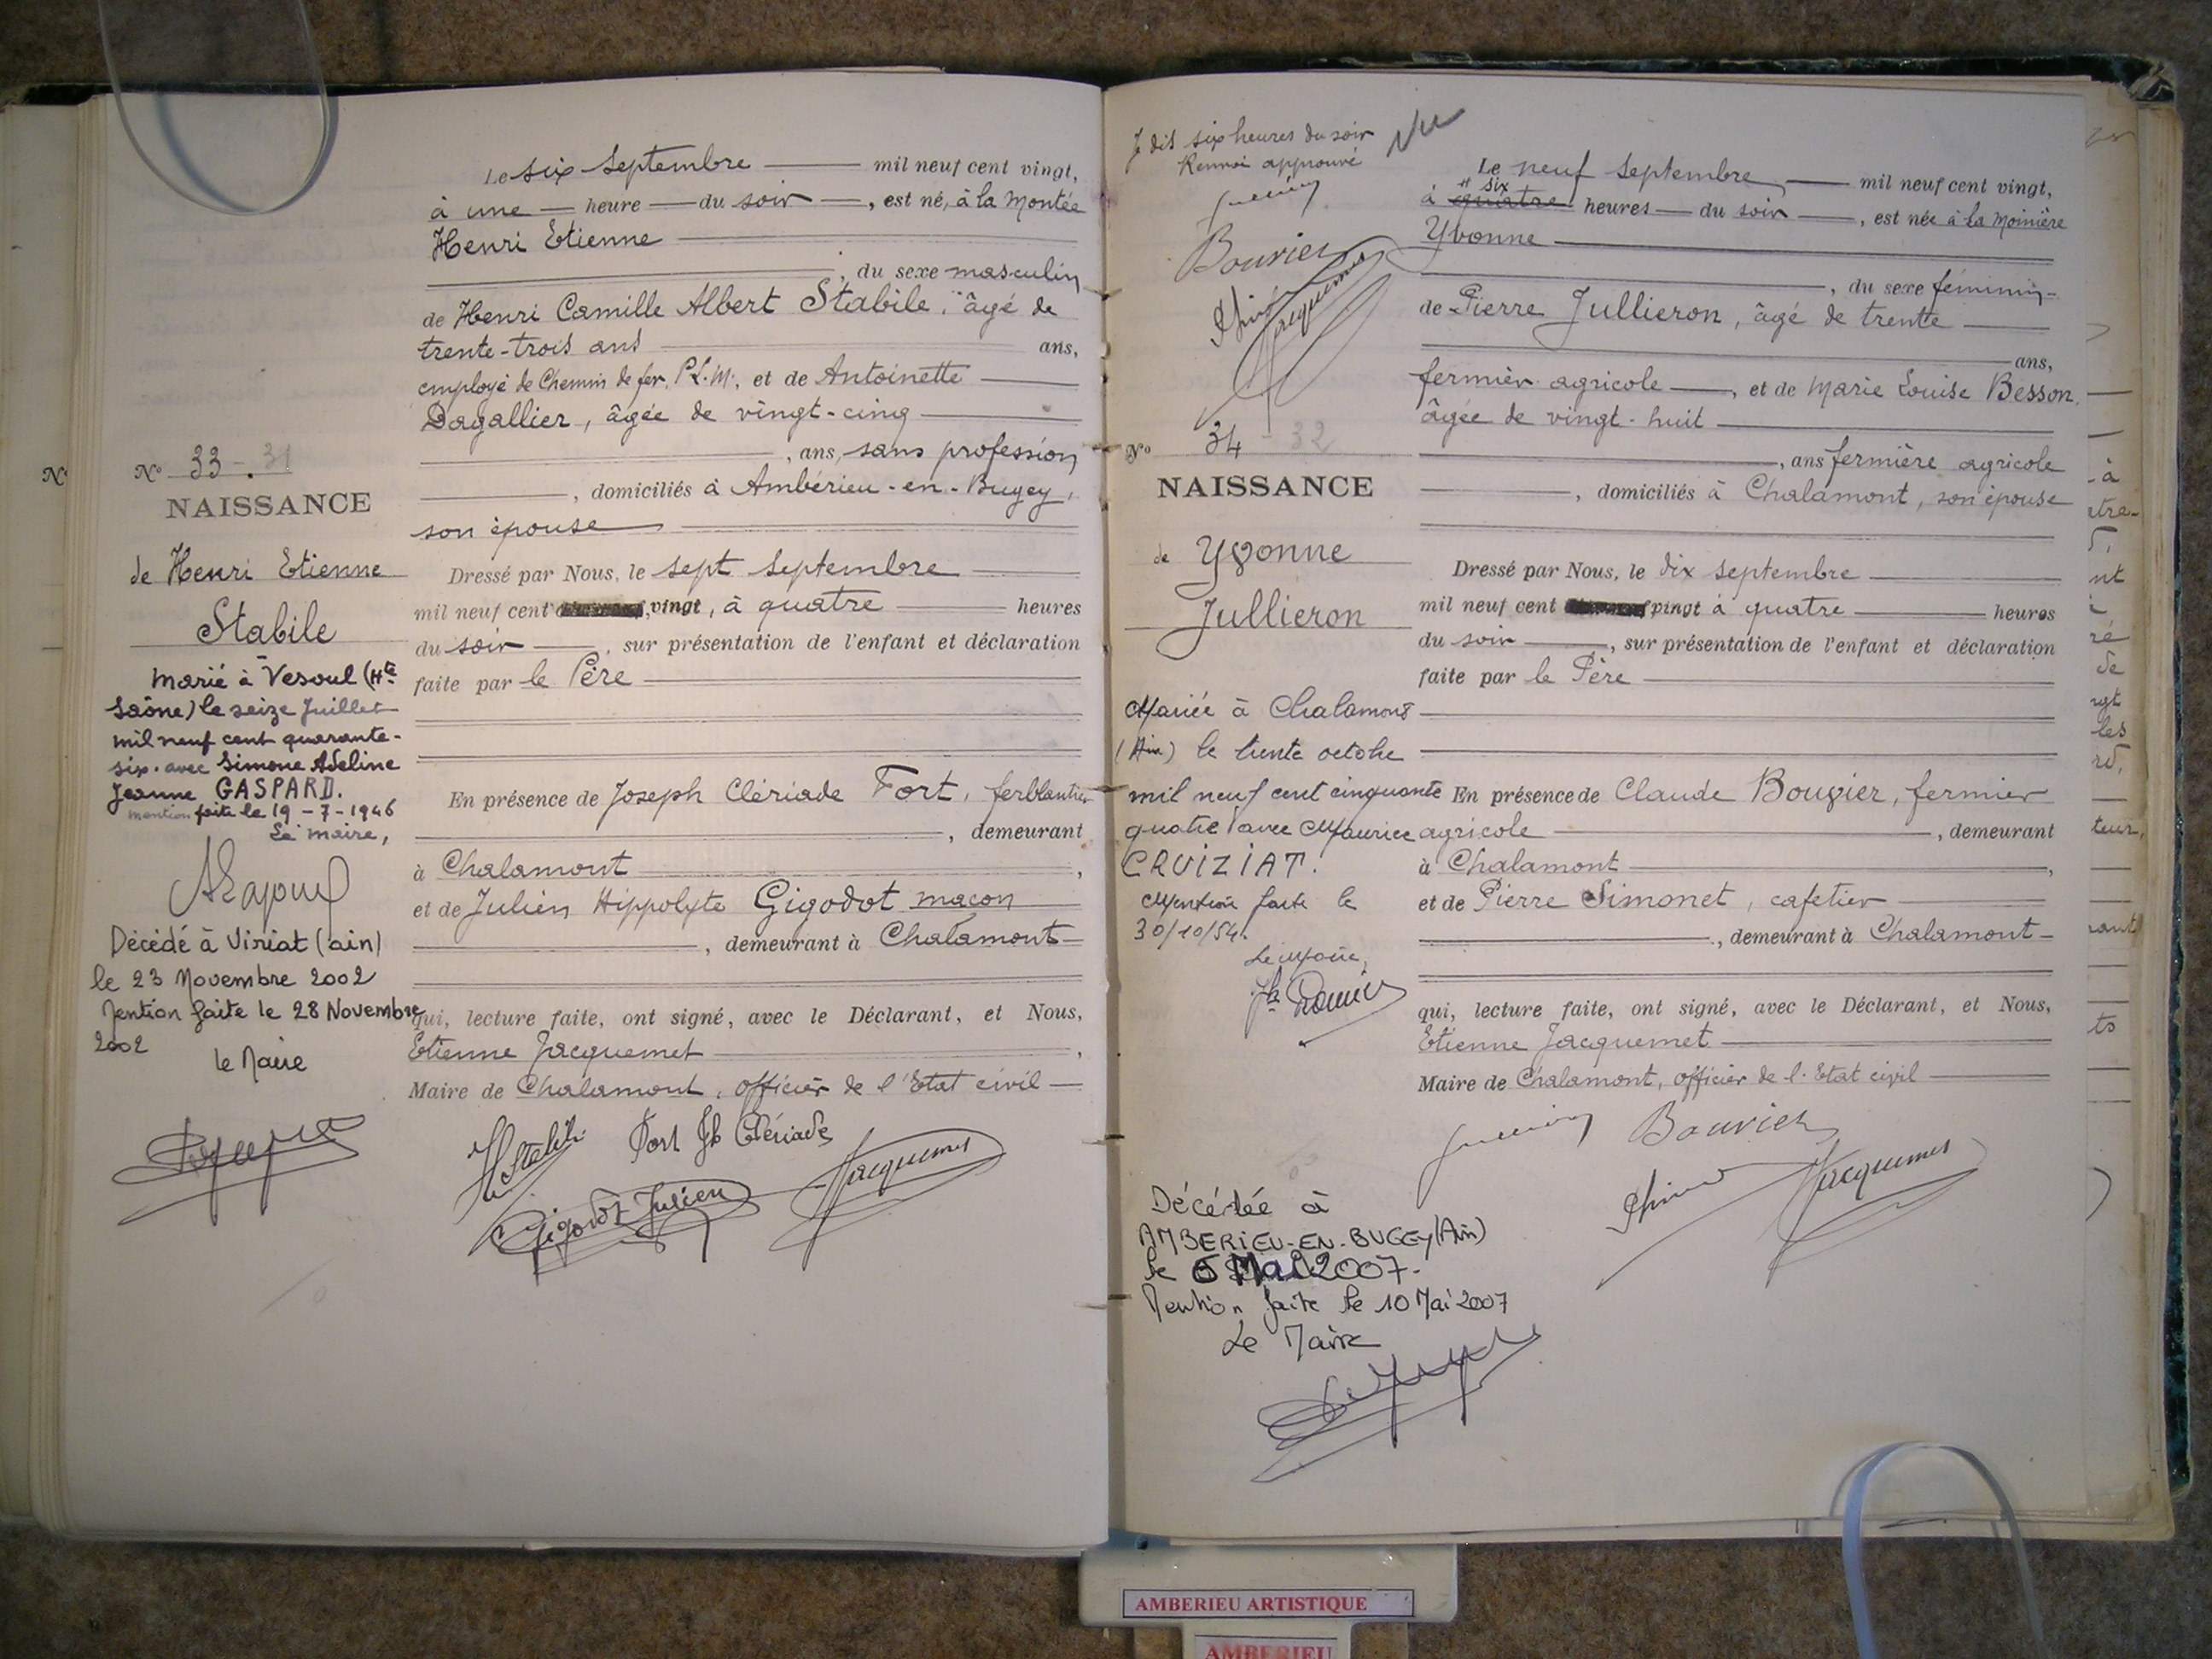 Le six Septembre mil neuf cent vingt,
à une heure du soir, est né, à la Montée
Henri Etienne
, du sexe masculin
de Henri Camille Albert Stabile, âgé de
trente-trois ans ans,
employé de Chemin de fer, P.L.M., et de Antoinette
Dagallier, âgée de vingt-cinq
, ans, sans profession
, domiciliés à Ambérieu-en-Bugey,
son épouse
N° 33 - 31
NAISSANCE
de Henri Etienne
Stabile
Dressé par Nous, le sept Septembre
mil neuf cent vingt, à quatre heures
du soir, sur présentation de l'enfant et déclaration
faite par le Père
Marié à Vesoul (Hte
Saône) le seize Juillet
mil neuf cent quarante-
six. avec Simone Adeline
Jeanne GASPARD.
mention faite le 19-7-1946
Le maire,
En présence de Joseph Clériade Fort, ferblantier
, demeurant
à Chalamont,
et de Julien Hippolyte Gigodot maçon
, demeurant à Chalamont
Décédé à Viriat (ain)
le 23 Novembre 2002
Mention faite le 28 Novembre
2002
le Maire
qui, lecture faite, ont signé, avec le Déclarant, et Nous,
Etienne Jacquemet,
Maire de Chalamont, officier de l'Etat civil
HStabile
Fort Jh Clériade
Gigodot Julien
Jacquemet
Je dis six heures du soir
Renvoi approuvé
Vu
Bouvier
Jacquemet
Le neuf Septembre mil neuf cent vingt,
" six
à quatre heures du soir, est née à la Moinière
Yvonne
, du sexe féminin
de Pierre Jullieron, âgé de trente
ans,
fermier agricole, et de Marie Louise Besson,
âgée de vingt-huit
, ans fermière agricole
, domiciliés à Chalamont, son épouse
N° 34 - 32
NAISSANCE
de Yvonne
Jullieron
Dressé par Nous, le dix Septembre
mil neuf cent vingt à quatre heures
du soir, sur présentation de l'enfant et déclaration
faite par le Père
Mariée à Chalamont
(Ain) le trente octobre
mil neuf cent cinquante
quatre avec Maurice
CRUIZIAT.
Mention faite le
30/10/54.
Le Maire,
En présence de Claude Bouvier, fermier
agricole, demeurant
à Chalamont,
et de Pierre Simonet, cafetier
, demeurant à Chalamont
qui, lecture faite, ont signé, avec le Déclarant, et Nous,
Etienne Jacquemet
Maire de Chalamont, officier de l'Etat civil
Bouvier
Jacquemet
Décédée à
AMBERIEU-EN-BUGEY (Ain)
le 6 Mai 2007.
Mention faite le 10 Mai 2007
Le Maire
AMBERIEU ARTISTIQUE
AMBERIEU